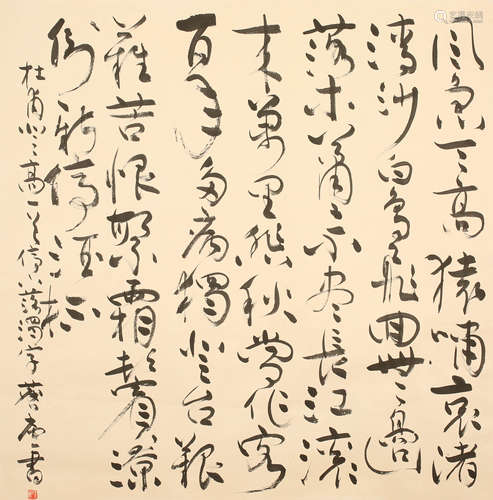 風急天高猿嘯哀渚
清沙白鳥飛回無邊
落木蕭々下不盡長江滾々
来萬里悲秋常作客
百年多病獨登台艱
難苦恨繁霜鬢潦
倒新停酒杯
杜甫登高一首停下落濁字書